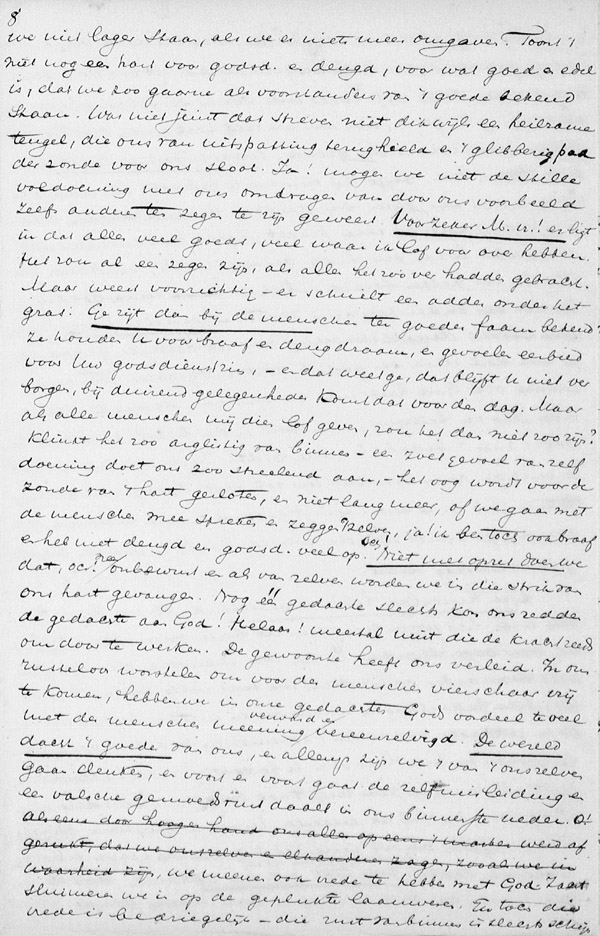 8
we niet lager staan, als we er niets meer omgaven. Toont 't
niet nog een hart voor godsd. en deugd, voor wat goed en edel
is, dat we zoo gaarne als voorstanders van 't goede bekend
staan. Was niet juist dat streven niet dikwijls een heilzame
teugel, die ons van uitspatting terughield en 't glibberig pad
der zonde voor ons sloot. Ja! mogen we niet de stille
voldoening met ons omdragen van door ons voorbeeld
zelfs anderen ten zegen te zijn geweest. Voorzeker M. vr.! er ligt
in dat alles veel goeds, veel waar ik lof voor over hebben.
Het zou al een zegen zijn, als allen het zoo ver hadden gebracht.
Maar weest voorzichtig – er schuilt een adder onder het
gras. Ge zijt dan bij de menschen ter goeder faam bekend
Ze houden u voor braaf en deugdzaam, en gevoelen eerbied
voor Uw godsdienstzin, – en dat weet ge, dat blijft u niet ver
borgen, bij duizend gelegenheden komt dat voor den dag. Maar
als alle menschen mij dien lof geven, zou het dan niet zoo zijn?
klinkt het zoo arglistig van binnen – een zoet gevoel van zelf
doening doet ons zoo streelend aan, – het oog wordt voor de
zonde van 't hart gesloten, en niet lang meer, of we gaan met
de menschen mee spreken en zeggen zelven, ja! ik ben toch ook braaf
en heb met deugd en godsd. veel op. Niet met opzet doen we
dat, och nee, onbewust en als van zelven worden we in die strik van
ons hart gevangen. Nog één gedachte slechts kon ons redden
de gedachte aan God! Helaas! meestal mist die de kracht reeds
om door te werken. De gewoonte heeft ons verleid. In ons
rusteloos worstelen om voor der menschen vierschaar vrij
te komen, hebben we in onze gedachten Gods oordeel te veel
met der menschen meening verward en vereenzelvigd. De wereld
dacht 't goede van ons, en allengs zijn we 't van 't onszelven
gaan denken, en voort en voort gaat de zelfmisleiding en
een valsche gemoedsrust daalt in ons binnenste neder. O!
als eens door hooger hand ons allen op eens 't masker werd af
gerukt, dat we ons zelven en elkander zagen, zooals we in
waarheid zijn, we meenen ook vrede te hebben met God. Zacht
sluimeren we in op de geplukte lauweren. En toch die
vrede is bedriegelijk – die rust van binnen is slechts schijn